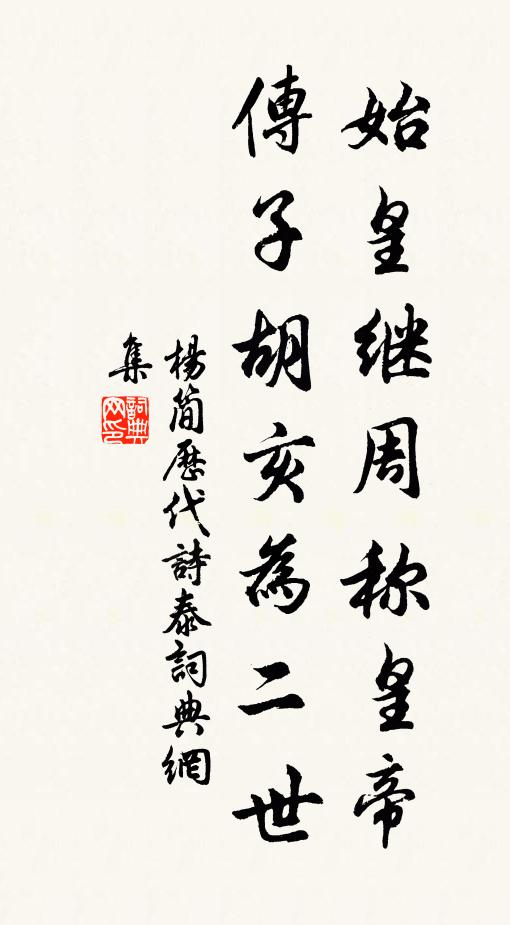 始皇继周称皇帝
傳子胡亥為二世
楊簡歷代詩泰詞典網
集
詞典
网印